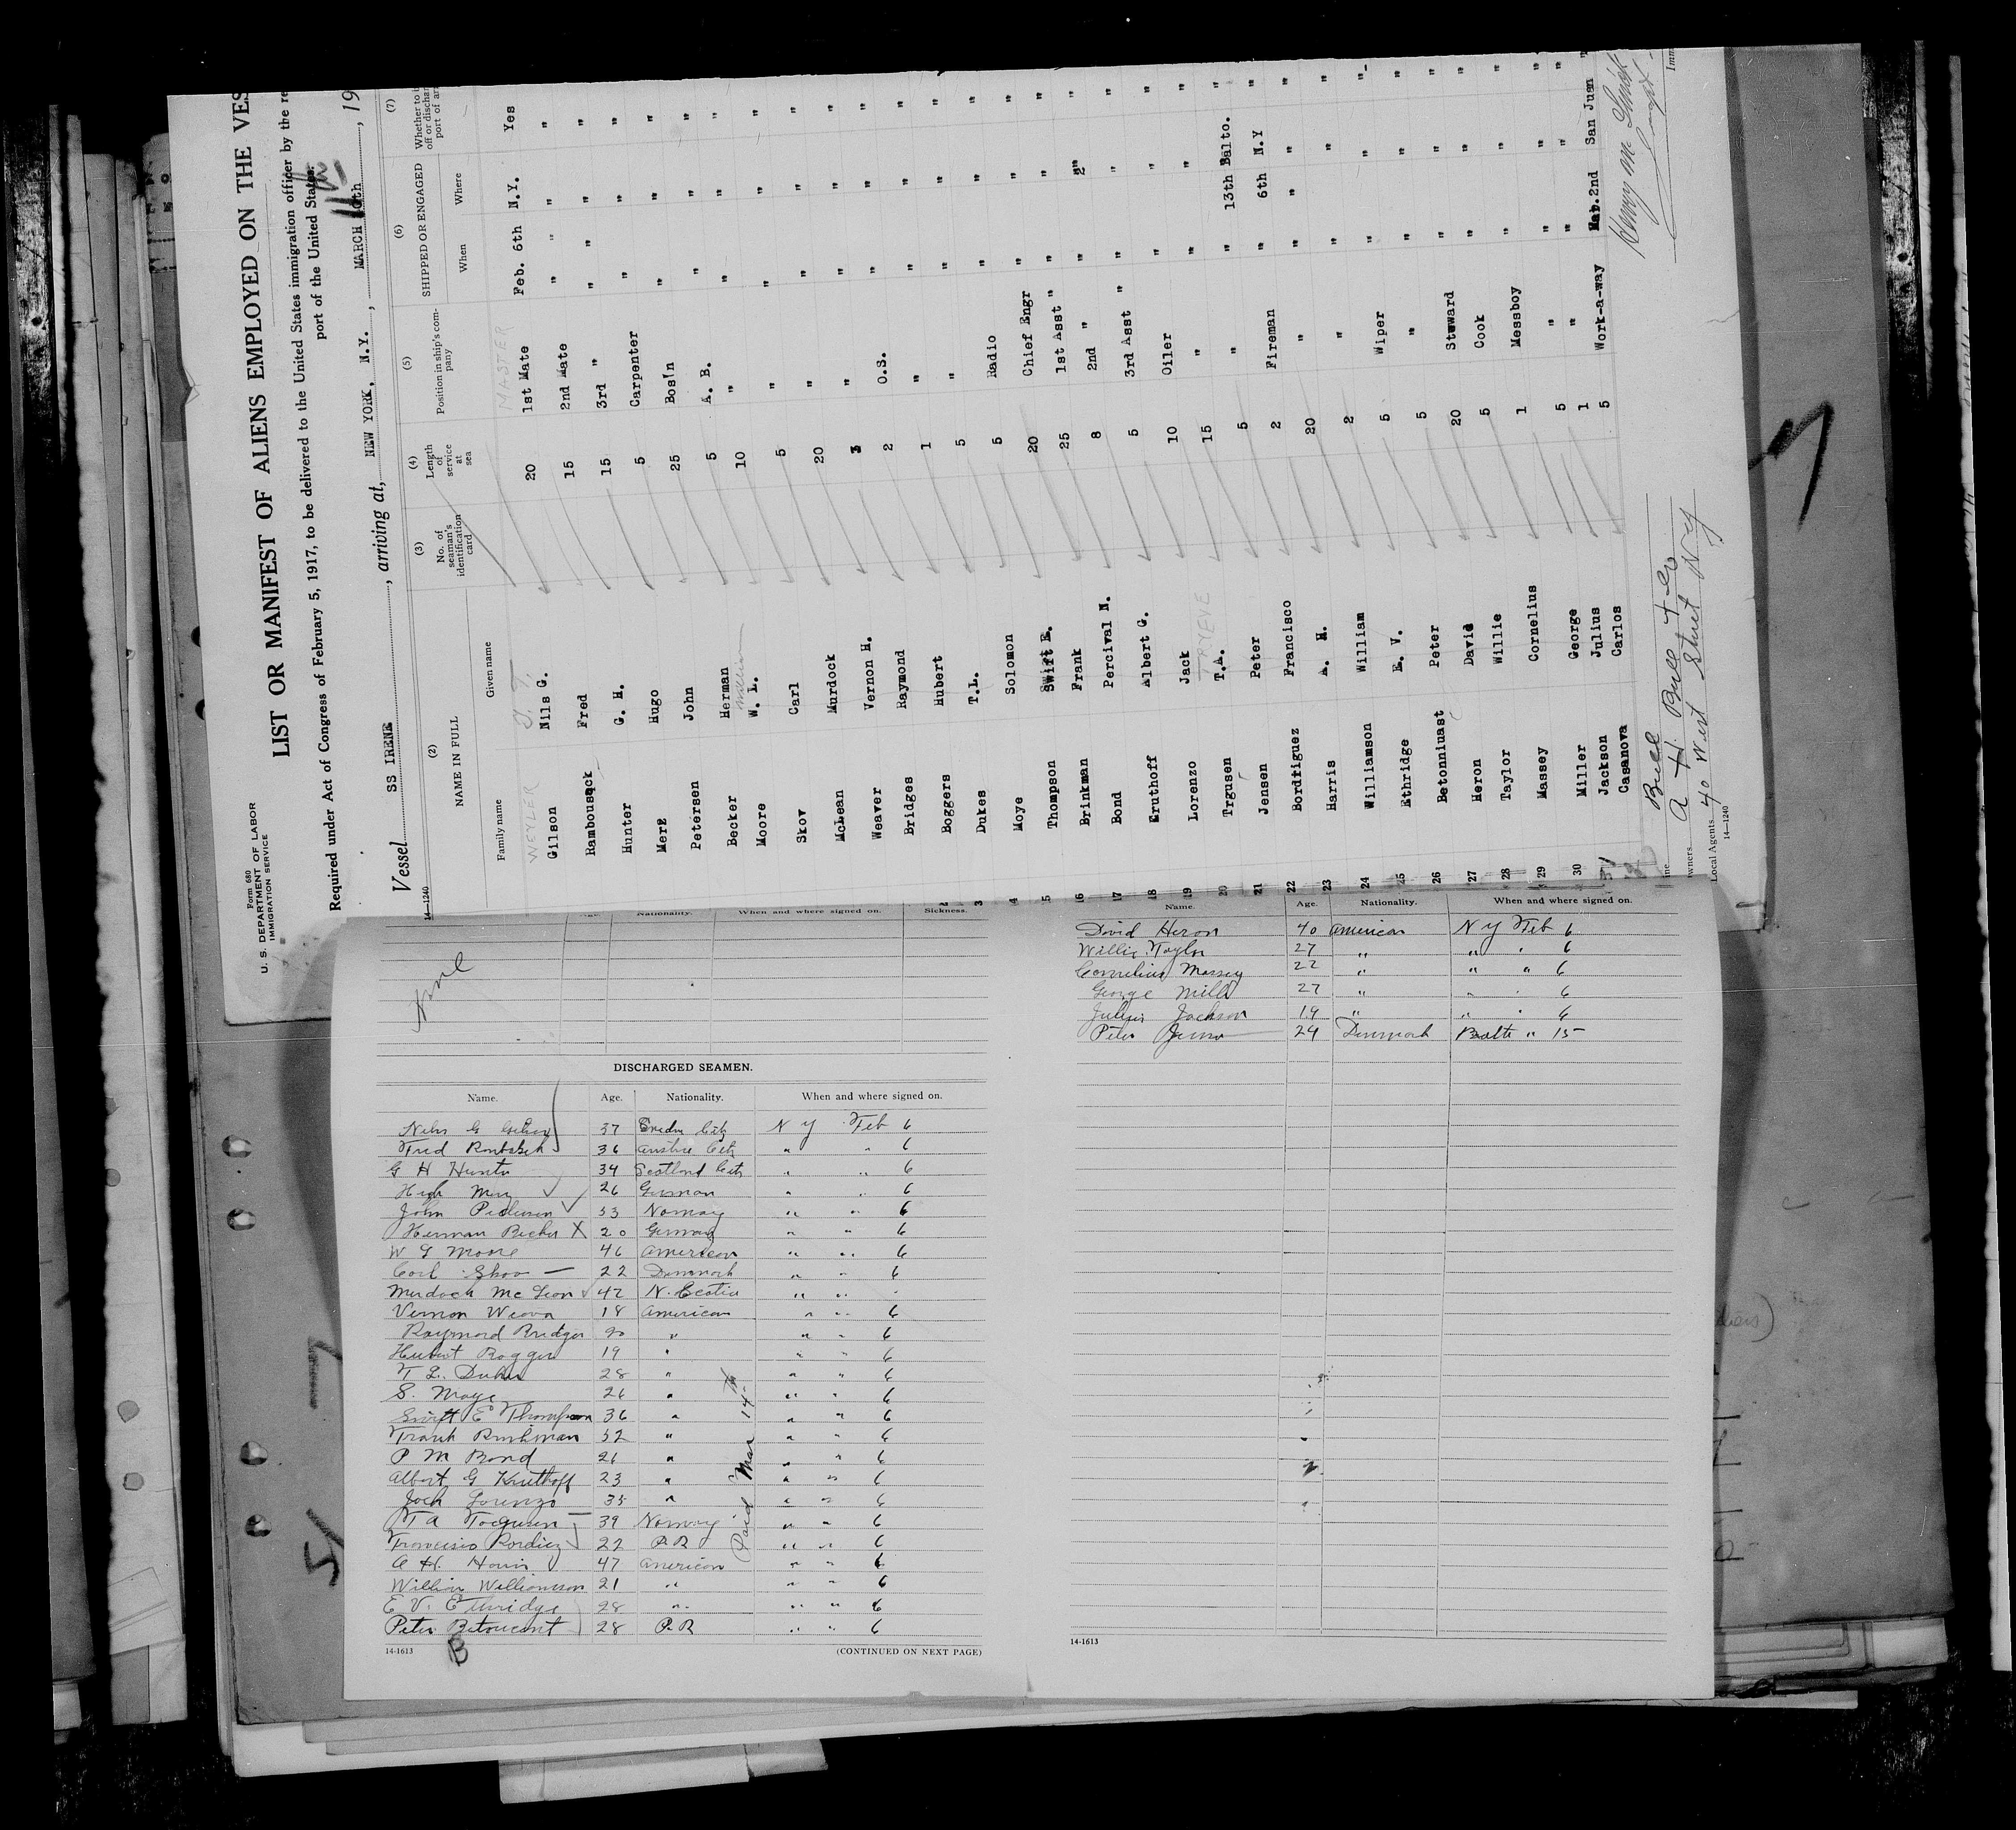 Form 680
U. S. DEPARTMENT OF LABOR
IMMIGRATION SERVICE
LIST OR MANIFEST OF ALIENS EMPLOYED ON THE VES
Required under Act of Congress of February 5, 1917, to be delivered to the United States immigration officer by the re
port of the United States.
11th
Vessel SS IRENE, arriving at, NEW YORK, N.Y., MARCH 10th, 19
14—1240
(2) (3) (4) (5) (6) (7)
NAME IN FULL
Family name Given name
No. of seaman's identification card
Length of service at sea
Position in ship's company
SHIPPED OR ENGAGED
When Where
Whether to
off or dischar
port of ar
WEYLER J. T. MASTER
Gilson Nils G. 20 1st Mate Feb. 6th N.Y. Yes
Rambouseck Fred 15 2nd Mate " " "
Hunter G. H. 15 3rd " " " "
Merz Hugo 5 Carpenter " " "
Petersen John 25 Bos'n " " "
Becker Herman 5 A. B. " " "
Moore W. L. 10 " " " "
Skov Carl 5 " " " "
McLean Murdock 20 " " " "
Weaver Vernon H. 3 " " " "
Bridges Raymond 2 O.S. " " "
Boggers Hubert 1 " " " "
Dukes T.L. 5 " " " "
Moye Solomon 5 Radio " " "
Thompson Swift E. 20 Chief Engr " " "
Brinkman Frank 25 1st Asst " " " "
Bond Percival N. 8 2nd " " " "
Kruthoff Albert G. 5 3rd Asst " " " "
Lorenzo Jack 10 Oiler " " "
Trgusen T.A. 15 " " " "
Jensen Peter 5 " " 13th Balto. "
Bordtiguez Francisco 2 Fireman " 6th N.Y "
Harris A. H. 20 " " " "
Williamson William 2 " " " "
Ethridge E. V. 5 Wiper " " "
Betonniuast Peter 5 " " " "
Heron David 20 Steward " " "
Taylor Willie 5 Cook " " "
Massey Cornelius 1 Messboy " " "
Miller George 5 " " " "
Jackson Julius 1 " " " "
Casanova Carlos 5 Work-a-way Mar. 2nd San Juan
Bull
A. H. Bull & Co
Local Agents 40 West Street NY
14—1240
Nationality. When and where signed on. Sickness.
None
DISCHARGED SEAMEN.
Name. Age. Nationality. When and where signed on.
Nils G Gilson 37 Sweden Citz N Y Feb 6
Fred 36 Austria Citz " " 6
G H Hunter 34 Scotland Citz " " 6
Hugh Merz 26 German " " 6
John Pedersen 33 Norway " " 6
Herman Becker X 20 Germany " " 6
W G Moore 46 American " " 6
Carl Skov 22 Denmark " " 6
Murdock McLean 42 N. Scotia " "
Vernon Weaver 18 American " " 6
Raymond Bridges 20 " " " 6
Hubert Boggers 19 " " " 6
T L. Dukes 28 " " " 6
S. Moye 26 " " " 6
Swift E Thompson 36 " " " 6
Frank Brinkman 32 " " " 6
P M Bond 26 " " " 6
Albert G Kruthoff 23 " " " 6
Jack Lorenzo 35 " " " 6
T A 39 Norway " " 6
Francisco 22 P.R " " 6
A H. Harris 47 American " " 6
William Williamson 21 " " " 6
E V. Ethridge 28 " " " 6
Peter 28 P.R " " 6
Paid Mar 14th
14-1613
B
(CONTINUED ON NEXT PAGE)
Name. Age. Nationality. When and where signed on.
David Heron 40 American N Y Feb 6
Willie Taylor 27 " " " 6
Cornelius Massey 22 " " " 6
George Miller 27 " " " 6
Julius Jackson 19 " " " 6
Peter 24 Denmark Balto " 15
14-1613